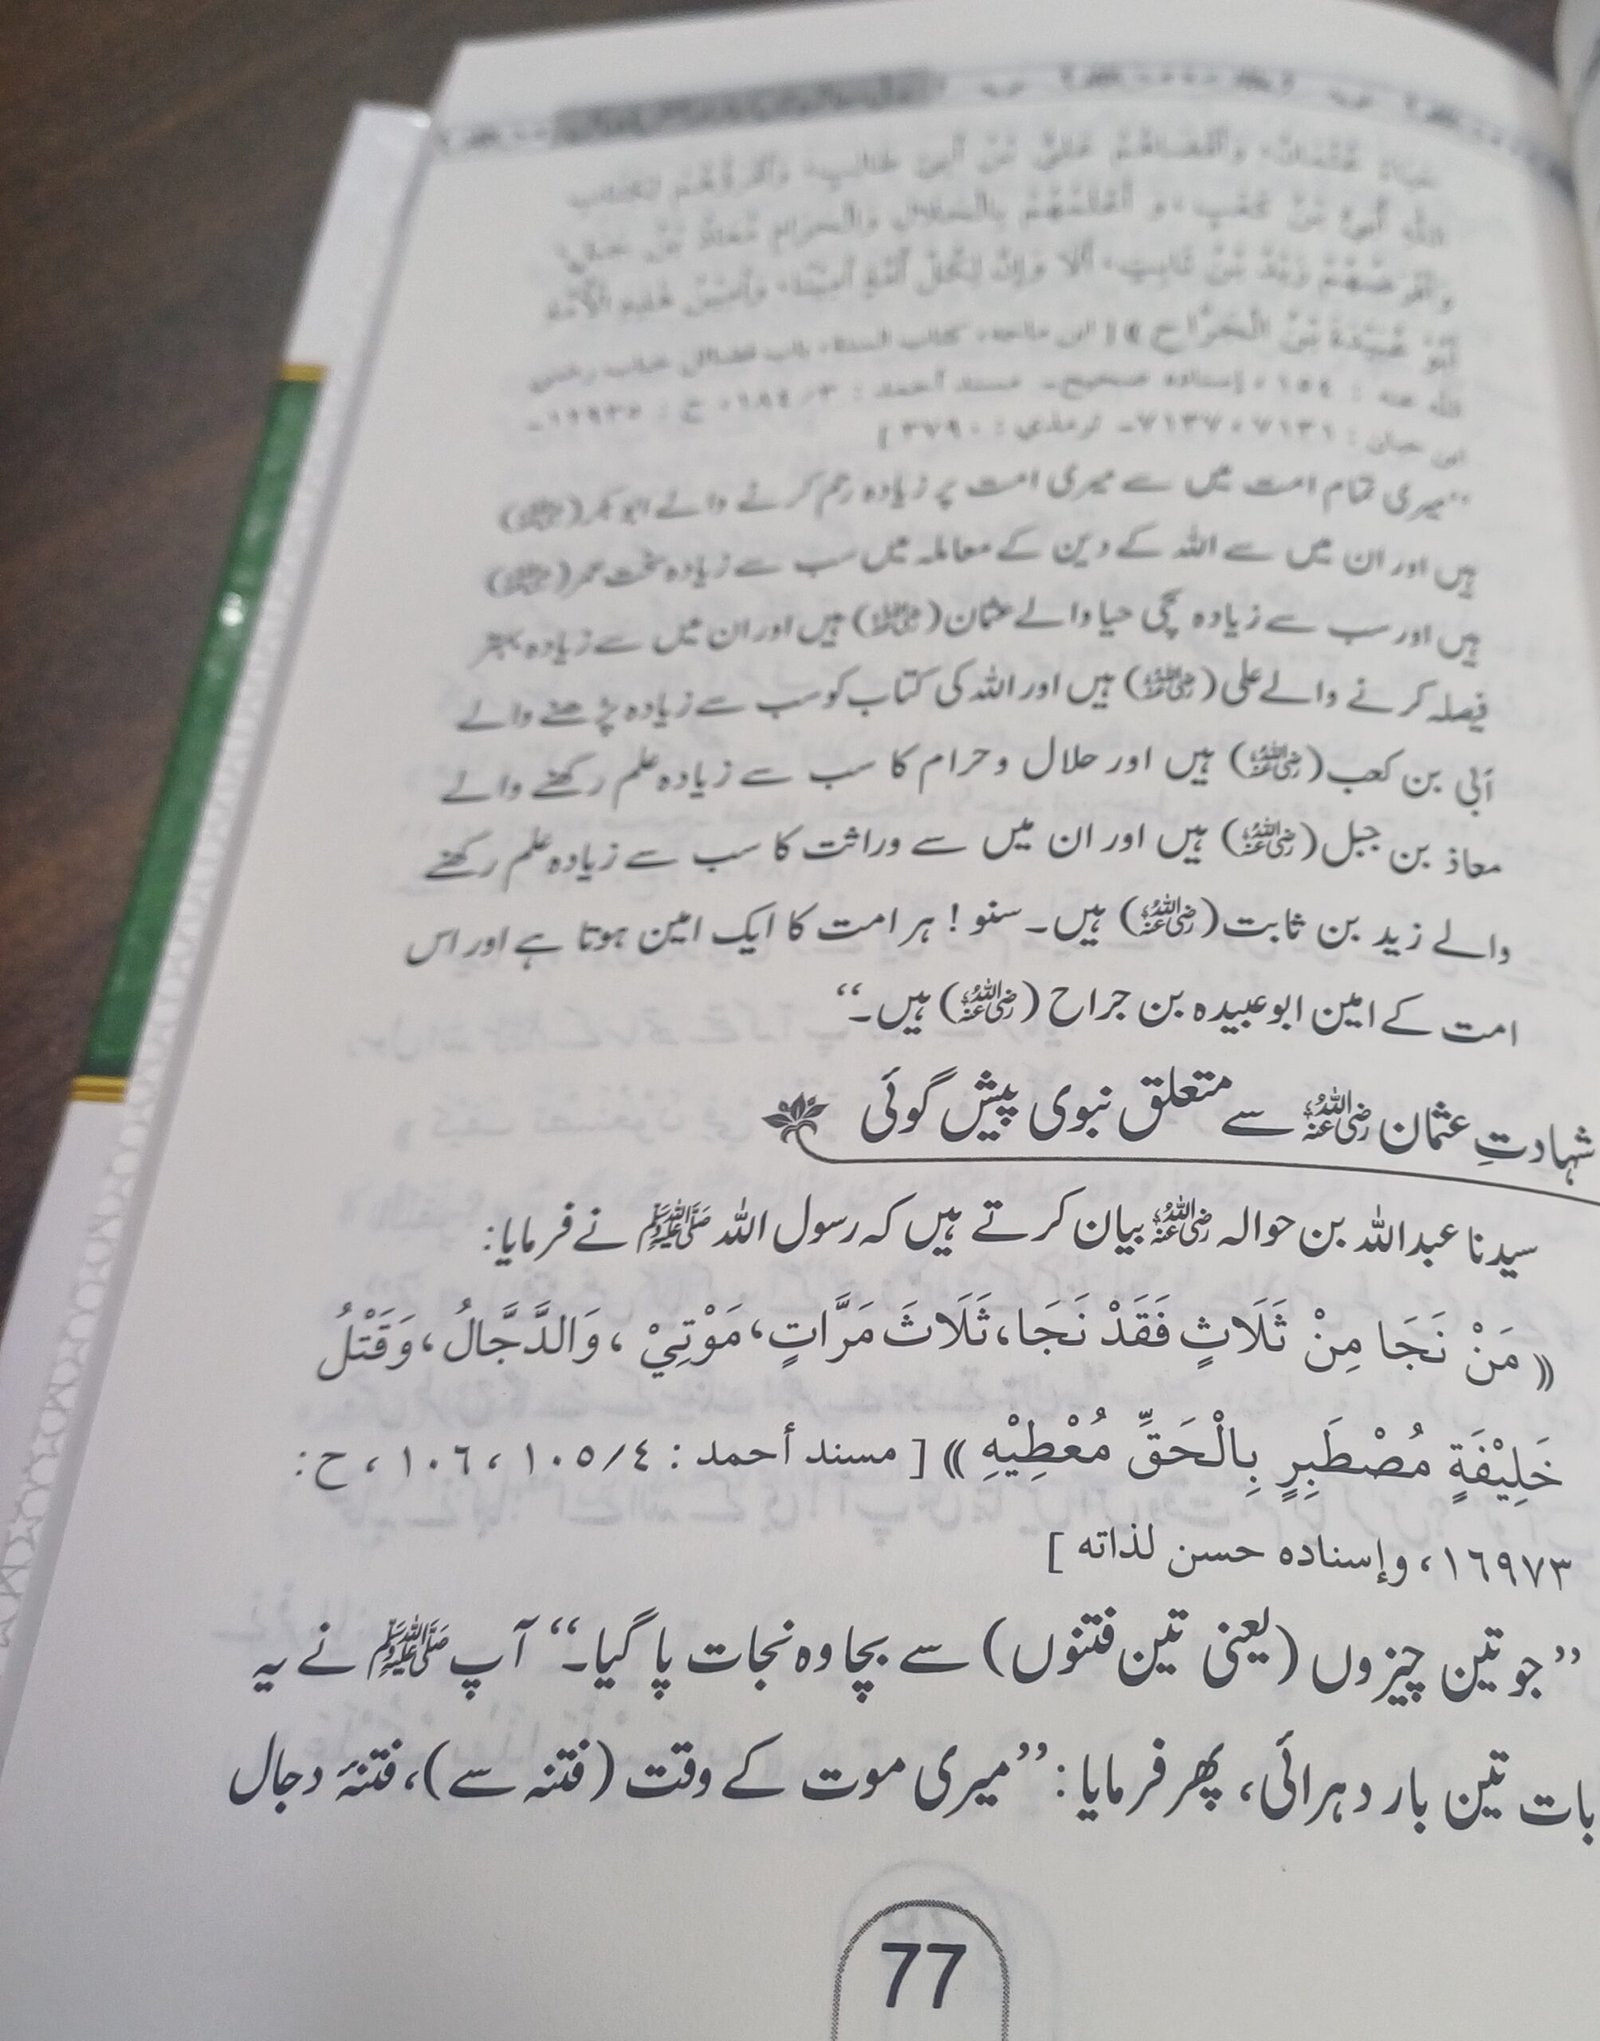 حَيَاءً عُثْمَانُ، وَأَقْضَاهُمْ عَلِيُّ بْنُ أَبِيْ طَالِبٍ، وَأَقْرَؤُهُمْ لِكِتَابِ
اللّٰهِ أُبَيُّ بْنُ كَعْبٍ، وَ أَعْلَمُهُمْ بِالْحَلَالِ وَالْحَرَامِ مُعَاذُ بْنُ جَبَلٍ،
وَأَفْرَضُهُمْ زَيْدُ بْنُ ثَابِتٍ، أَلَا وَإِنَّ لِكُلِّ أُمَّةٍ أَمِيْنًا، وَأَمِيْنُ هٰذِهِ الْأُمَّةِ
أَبُوْ عُبَيْدَةَ بْنُ الْجَرَّاحِ )) [ ابن ماجه، كتاب السنة، باب فضائل خباب رضي
الله عنه : ١٥٤، إسناده صحيح۔ مسند أحمد : ٣/١٨٤، ح : ١٢٩٣٥۔
ابن حبان : ٧١٣١، ٧١٣٧۔ ترمذي : ٣٧٩٠ ]
”میری تمام امت میں سے میری امت پر زیادہ رحم کرنے والے ابوبکر (رضی اللہ عنہ)
ہیں اور ان میں سے اللہ کے دین کے معاملہ میں سب سے زیادہ سخت عمر (رضی اللہ عنہ)
ہیں اور سب سے زیادہ سچی حیا والے عثمان (رضی اللہ عنہ) ہیں اور ان میں سے زیادہ بہتر
فیصلہ کرنے والے علی (رضی اللہ عنہ) ہیں اور اللہ کی کتاب کو سب سے زیادہ پڑھنے والے
اُبی بن کعب (رضی اللہ عنہ) ہیں اور حلال و حرام کا سب سے زیادہ علم رکھنے والے
معاذ بن جبل (رضی اللہ عنہ) ہیں اور ان میں سے وراثت کا سب سے زیادہ علم رکھنے
والے زید بن ثابت (رضی اللہ عنہ) ہیں۔ سنو! ہر امت کا ایک امین ہوتا ہے اور اس
امت کے امین ابوعبیدہ بن جراح (رضی اللہ عنہ) ہیں۔“
شہادتِ عثمان رضی اللہ عنہ سے متعلق نبوی پیش گوئی
سیدنا عبداللہ بن حوالہ رضی اللہ عنہ بیان کرتے ہیں کہ رسول اللہ ﷺ نے فرمایا:
(( مَنْ نَجَا مِنْ ثَلَاثٍ فَقَدْ نَجَا، ثَلَاثَ مَرَّاتٍ، مَوْتِيْ، وَالدَّجَّالُ، وَقَتْلُ
خَلِيْفَةٍ مُصْطَبِرٍ بِالْحَقِّ مُعْطِيْهِ )) [ مسند أحمد : ٤/١٠٥، ١٠٦، ح:
١٦٩٧٣، وإسناده حسن لذاته ]
”جو تین چیزوں (یعنی تین فتنوں) سے بچا وہ نجات پا گیا۔“ آپ ﷺ نے یہ
بات تین بار دہرائی، پھر فرمایا: ”میری موت کے وقت (فتنہ سے)، فتنۂ دجال
77